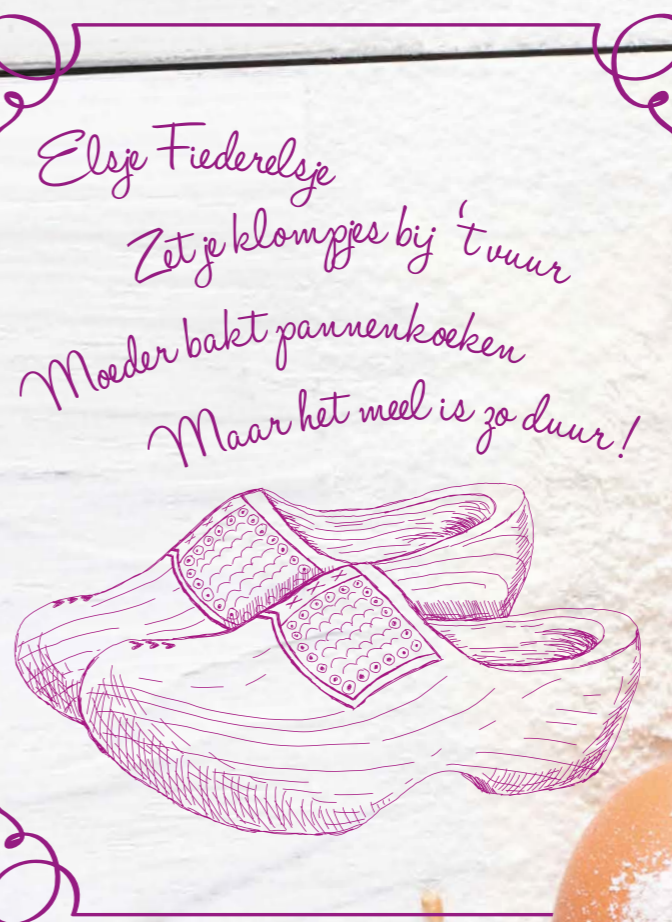 Elsje Fiederelsje
Zet je klompjes bij 't vuur
Moeder bakt pannenkoeken
Maar het meel is zo duur!